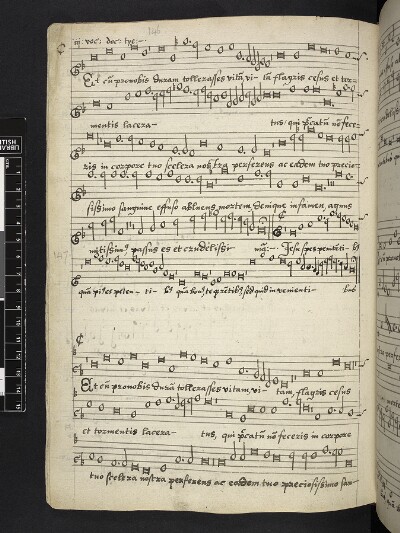 146
iij: voc: doc: tye:-
Et cū pro nobis duram tollerasses vitā vi- tā flagris cesus et tor-
mentis lacera- tus, qui pctā nō fece-
ris in corpore tuo scelera nostra perferens ac eodem tuo precio-
sissimo sanguine effuso abluens, mortem denique infamen, agnus
mitissimus passus es et crudelissi ma:- Jesu spes penitēti- bs
quā pius es peten- ti- bs quā bonus te querētibs sed quid invenienti- bus
Et cū pro nobis durā tollerasses vitam, vi- tam flagris cesus
et tormentis lacera- tus, qui pctā nō feceris in corpore
tuo scelera nostra perferens ac eodem tuo praeciosissimo san-
BRITISH
LIBRARY